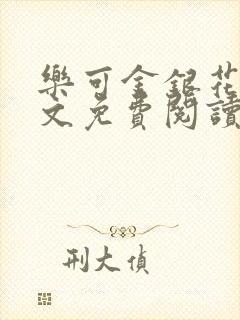 樂可金銀花
文免費閱讀
刑大偵